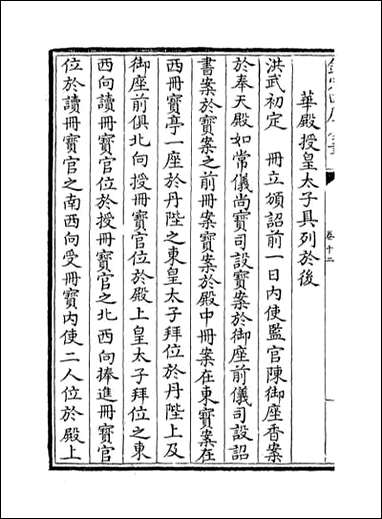 卷十二
華殿授皇太子具列於後
洪武初定　冊立頒詔前一日内使監官陳御座香案
於奉天殿如常儀尚寶司設寶案於御座前儀司設詔
書案於寶案之前冊案寶案於殿中冊案在東寶案在
西冊寶亭一座於丹陛之東皇太子拜位於丹陛上及
御座前俱北向授冊寶官位於殿上皇太子拜位之東
西向讀冊寶官位於授冊寶官之北西向捧進冊寶官
位於讀冊寶官之南西向受冊寶内使二人位於殿上